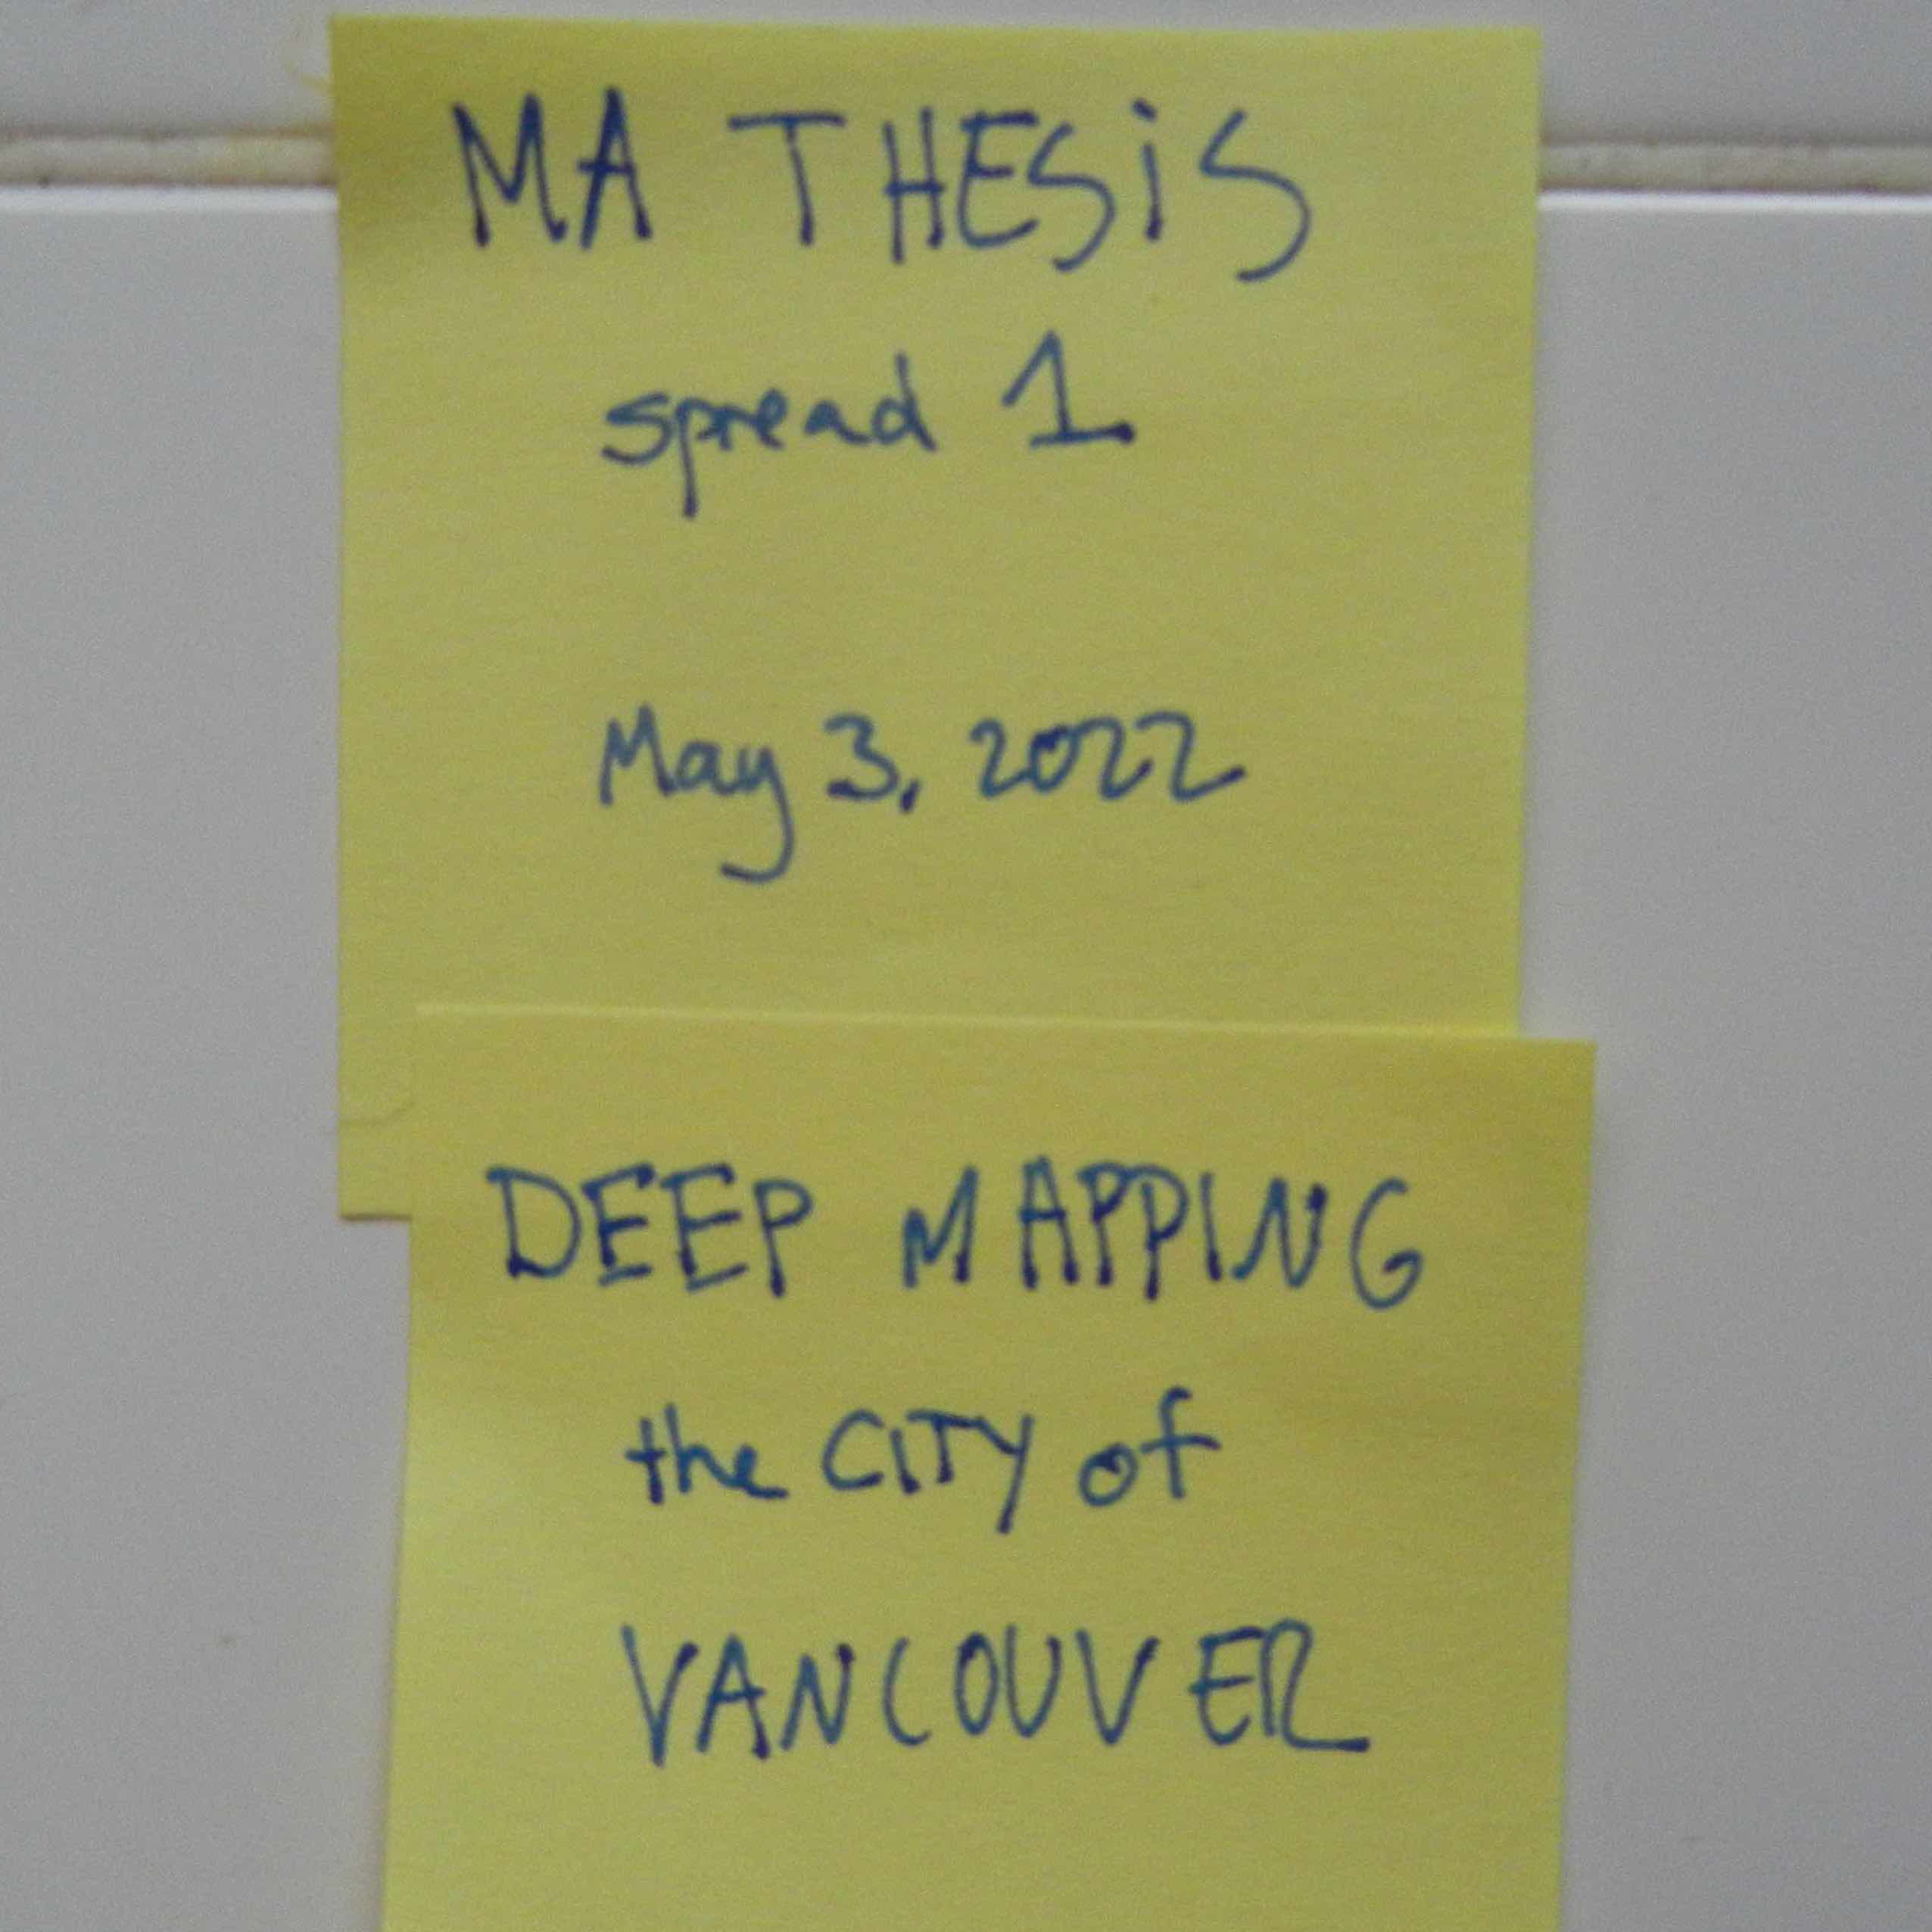 MA THESiS
spread 1
May 3, 2022
DEEP MAPPING
the CITY of
VANCOUVER